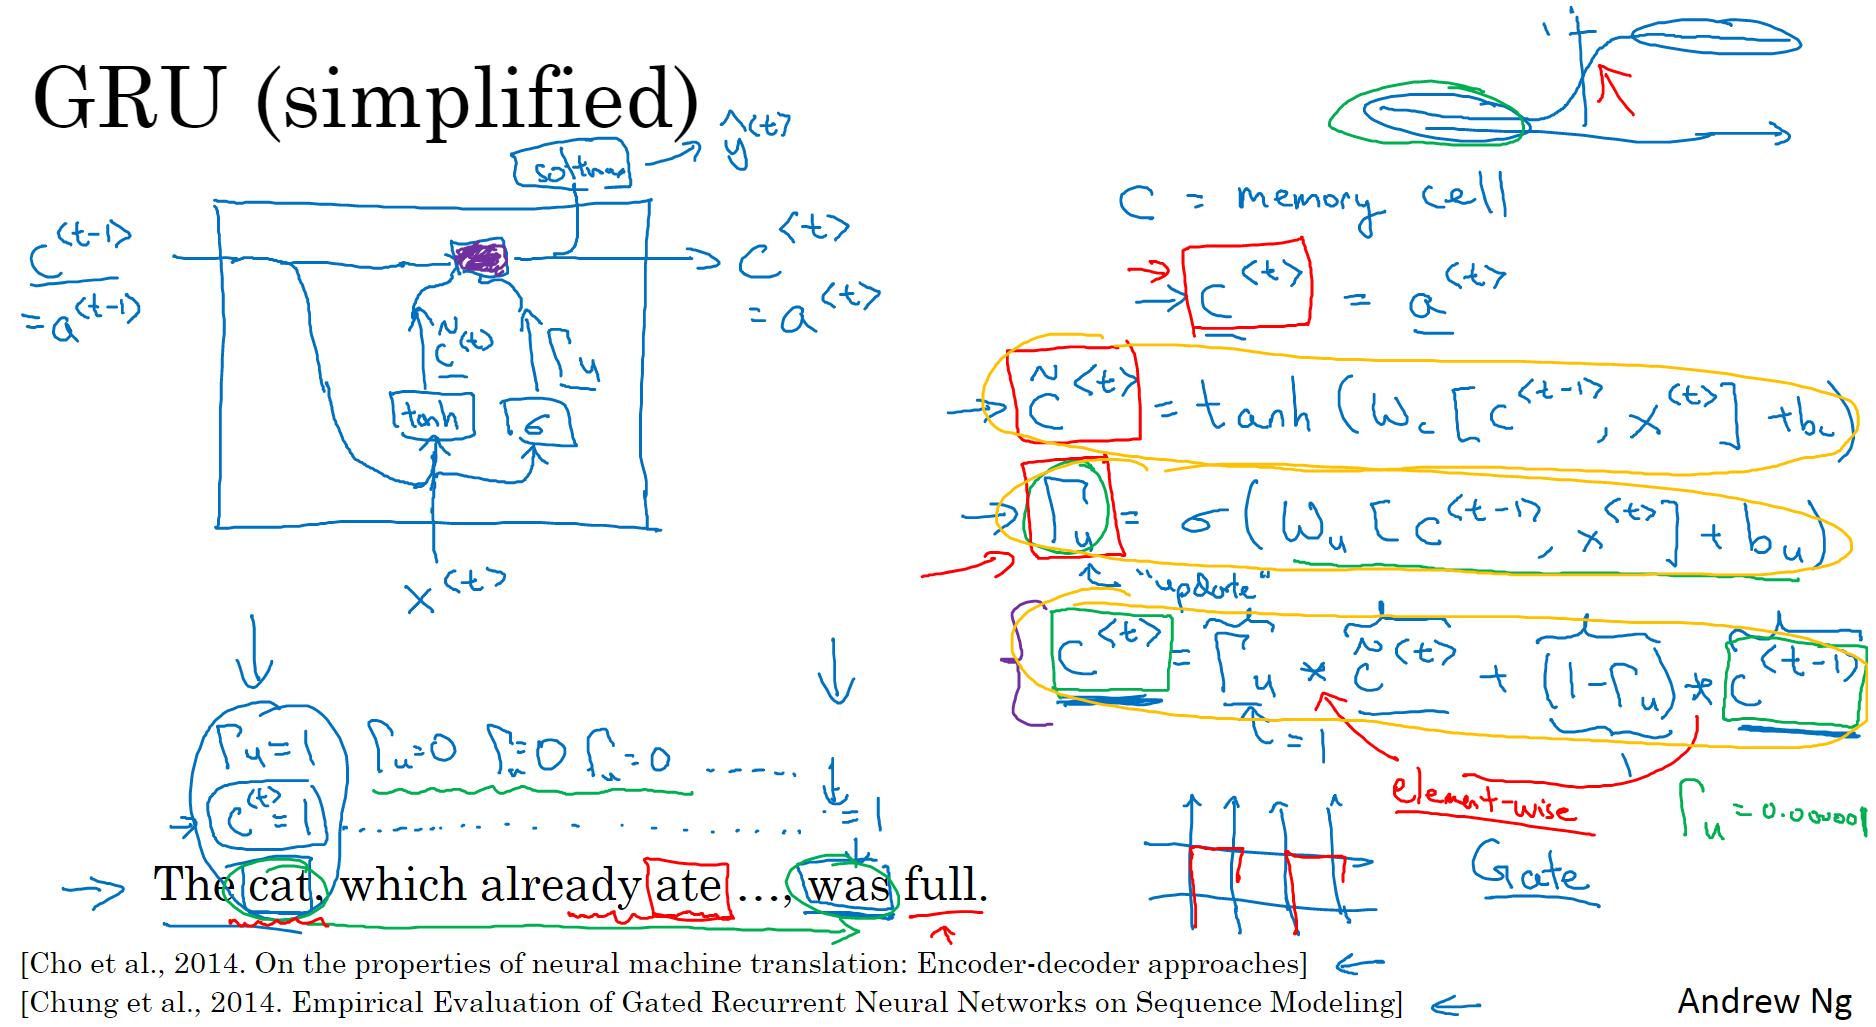 GRU (simplified)
softmax
ŷ<t>
c<t-1>
= a<t-1>
c̃<t>
Γu
tanh
σ
x<t>
c<t>
= a<t>
C = memory cell
c<t> = a<t>
c̃<t> = tanh (Wc [c<t-1>, x<t>] + bc)
Γu = σ (Wu [c<t-1>, x<t>] + bu)
"update"
c<t> = Γu * c̃<t> + (1-Γu) * c<t-1>
= 1
element-wise
Γu = 0.000001
Gate
Γu = 1 Γu = 0 Γu = 0 Γu = 0 ......
c<t> = 1 ............ = 1
The cat, which already ate …, was full.
[Cho et al., 2014. On the properties of neural machine translation: Encoder-decoder approaches]
[Chung et al., 2014. Empirical Evaluation of Gated Recurrent Neural Networks on Sequence Modeling]
Andrew Ng